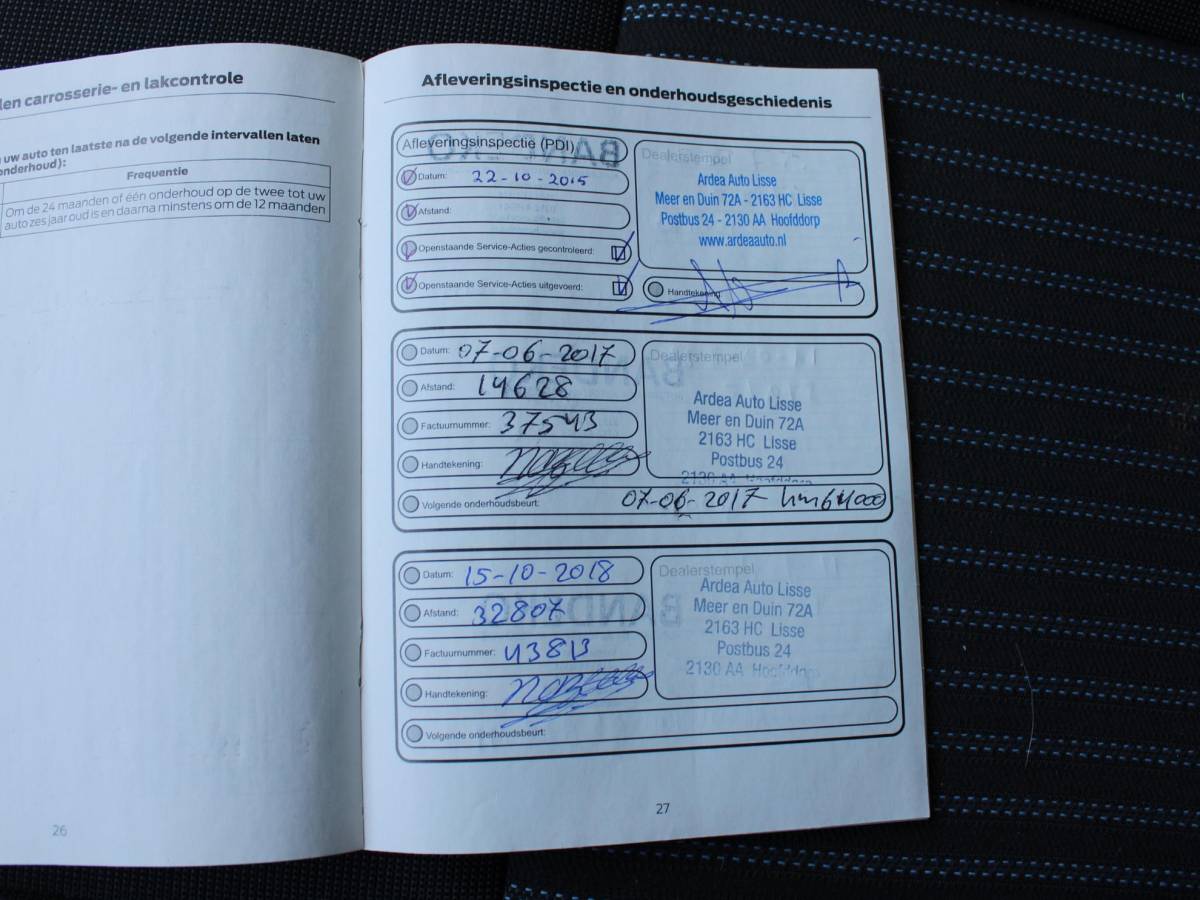 len carrosserie- en lakcontrole
uw auto ten laatste na de volgende intervallen laten
onderhoud):
Frequentie
Om de 24 maanden of één onderhoud op de twee tot uw
auto zes jaar oud is en daarna minstens om de 12 maanden
26
Afleveringsinspectie en onderhoudsgeschiedenis
Afleveringsinspectie (PDI)
Datum: 22-10-2015
Afstand:
Openstaande Service-Acties gecontroleerd:
Openstaande Service-Acties uitgevoerd:
Dealerstempel
Ardea Auto Lisse
Meer en Duin 72A - 2163 HC Lisse
Postbus 24 - 2130 AA Hoofddorp
www.ardeaauto.nl
Handtekening:
Datum: 07-06-2017
Afstand: 14628
Factuurnummer: 37543
Handtekening:
Dealerstempel
Ardea Auto Lisse
Meer en Duin 72A
2163 HC Lisse
Postbus 24
2130 AA Hoofddorp
Volgende onderhoudsbeurt: 07-06-2017 km 64000
Datum: 15-10-2018
Afstand: 32807
Factuurnummer: 43813
Handtekening:
Dealerstempel
Ardea Auto Lisse
Meer en Duin 72A
2163 HC Lisse
Postbus 24
2130 AA Hoofddorp
Volgende onderhoudsbeurt:
27